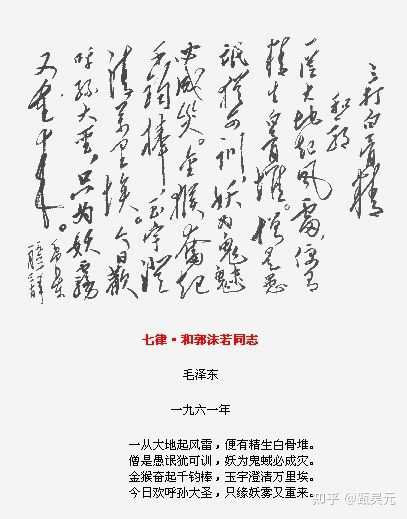 三打白骨精
和郭
一从大地起风雷，便有
精生白骨堆。僧是愚
氓犹可训，妖为鬼蜮
必成灾。金猴奋起
千钧棒，玉宇澄
清万里埃。今日欢
呼孙大圣，只为妖雾
又重来。
七律·和郭沫若同志
毛泽东
一九六一年
一从大地起风雷，便有精生白骨堆。
僧是愚氓犹可训，妖为鬼蜮必成灾。
金猴奋起千钧棒，玉宇澄清万里埃。
今日欢呼孙大圣，只缘妖雾又重来。
知乎 @甄昊元